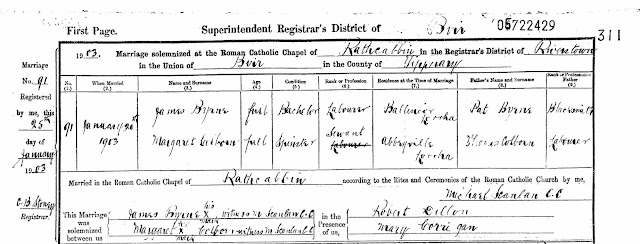 First Page. Superintendent Registrar's District of Birr 05722429
311
1903. Marriage solemnized at the Roman Catholic Chapel of Rathcabbin in the Registrar's District of Riverstown
in the Union of Birr in the County of Tipperary
Marriage
No. 91
Registered
by me, this
25th
day of
January
1903
Registrar.
No. (1.) When Married (2.) Name and Surname (3.) Age (4.) Condition (5.) Rank or Profession (6.) Residence at the Time of Marriage (7.) Father's Name and Surname (8.) Rank or Profession of Father (9.)
91 January 1903
James Byrne full Bachelor Labourer Lorrha Pat Byrne Blacksmith
Margaret full Spinster Servant Labourer Abbeyville Lorrha Labourer
Married in the Roman Catholic Chapel of Rathcabbin according to the Rites and Ceremonies of the Roman Catholic Church by me,
Michael Scanlan C.C.
This Marriage was solemnized between us
James Byrne X his witness M Scanlan C.C.
Margaret X witness M Scanlan C.C.
in the Presence of us,
Robert Dillon
Mary Corrigan